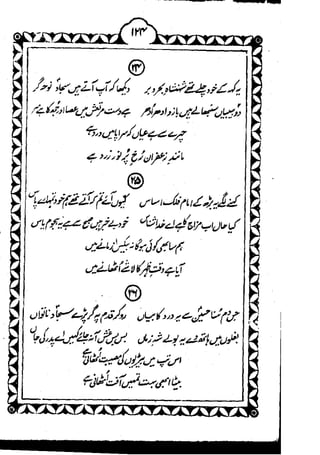 ۱۲۳
۲۴
یہ کہہ کے خود چلے تھے شہنشاہِ بحر و بر دیکھا کہ آپ آتے ہیں سجاد نوحہ گر
دو بیبیاں سنبھالے ہیں بازو ادھر ادھر ہے دستِ مرتعش میں عصا اور جھکا ہے سر
چہرے سے ہے عیاں کہ سراپا میں درد ہے
مانندِ زعفران رُخِ پُر نور زرد ہے
۲۵
کہنے لگے یہ بڑھ کے امامِ فلک اساس کیوں آئے تم کہ آتے تھے ہم خود تمہارے پاس
کیا حال اب مزاج کا ہے اے خدا شناس خود بے خبر ہیں صبح سے ہے ہجومِ یاس
ہم سا بھی کوئی ہوگا نہ بیکس زمانے میں
آیا ہے وقتِ ظہر کا لاشے اٹھانے میں
۲۶
جس دم سُنا حسینؑ سے یہ درد کا بیاں رو کر قدم پہ گر پڑے سجادِ ناتواں
بغلوں میں ہاتھ دے کے یہ بولے شہِ زماں بس بس غش آ نہ جائے کہیں اے پدر کی جاں
اس تپ میں بیڑیوں کی مصیبت اُٹھانی ہے
بیٹا ابھی بہت تمہیں آفت اُٹھانی ہے